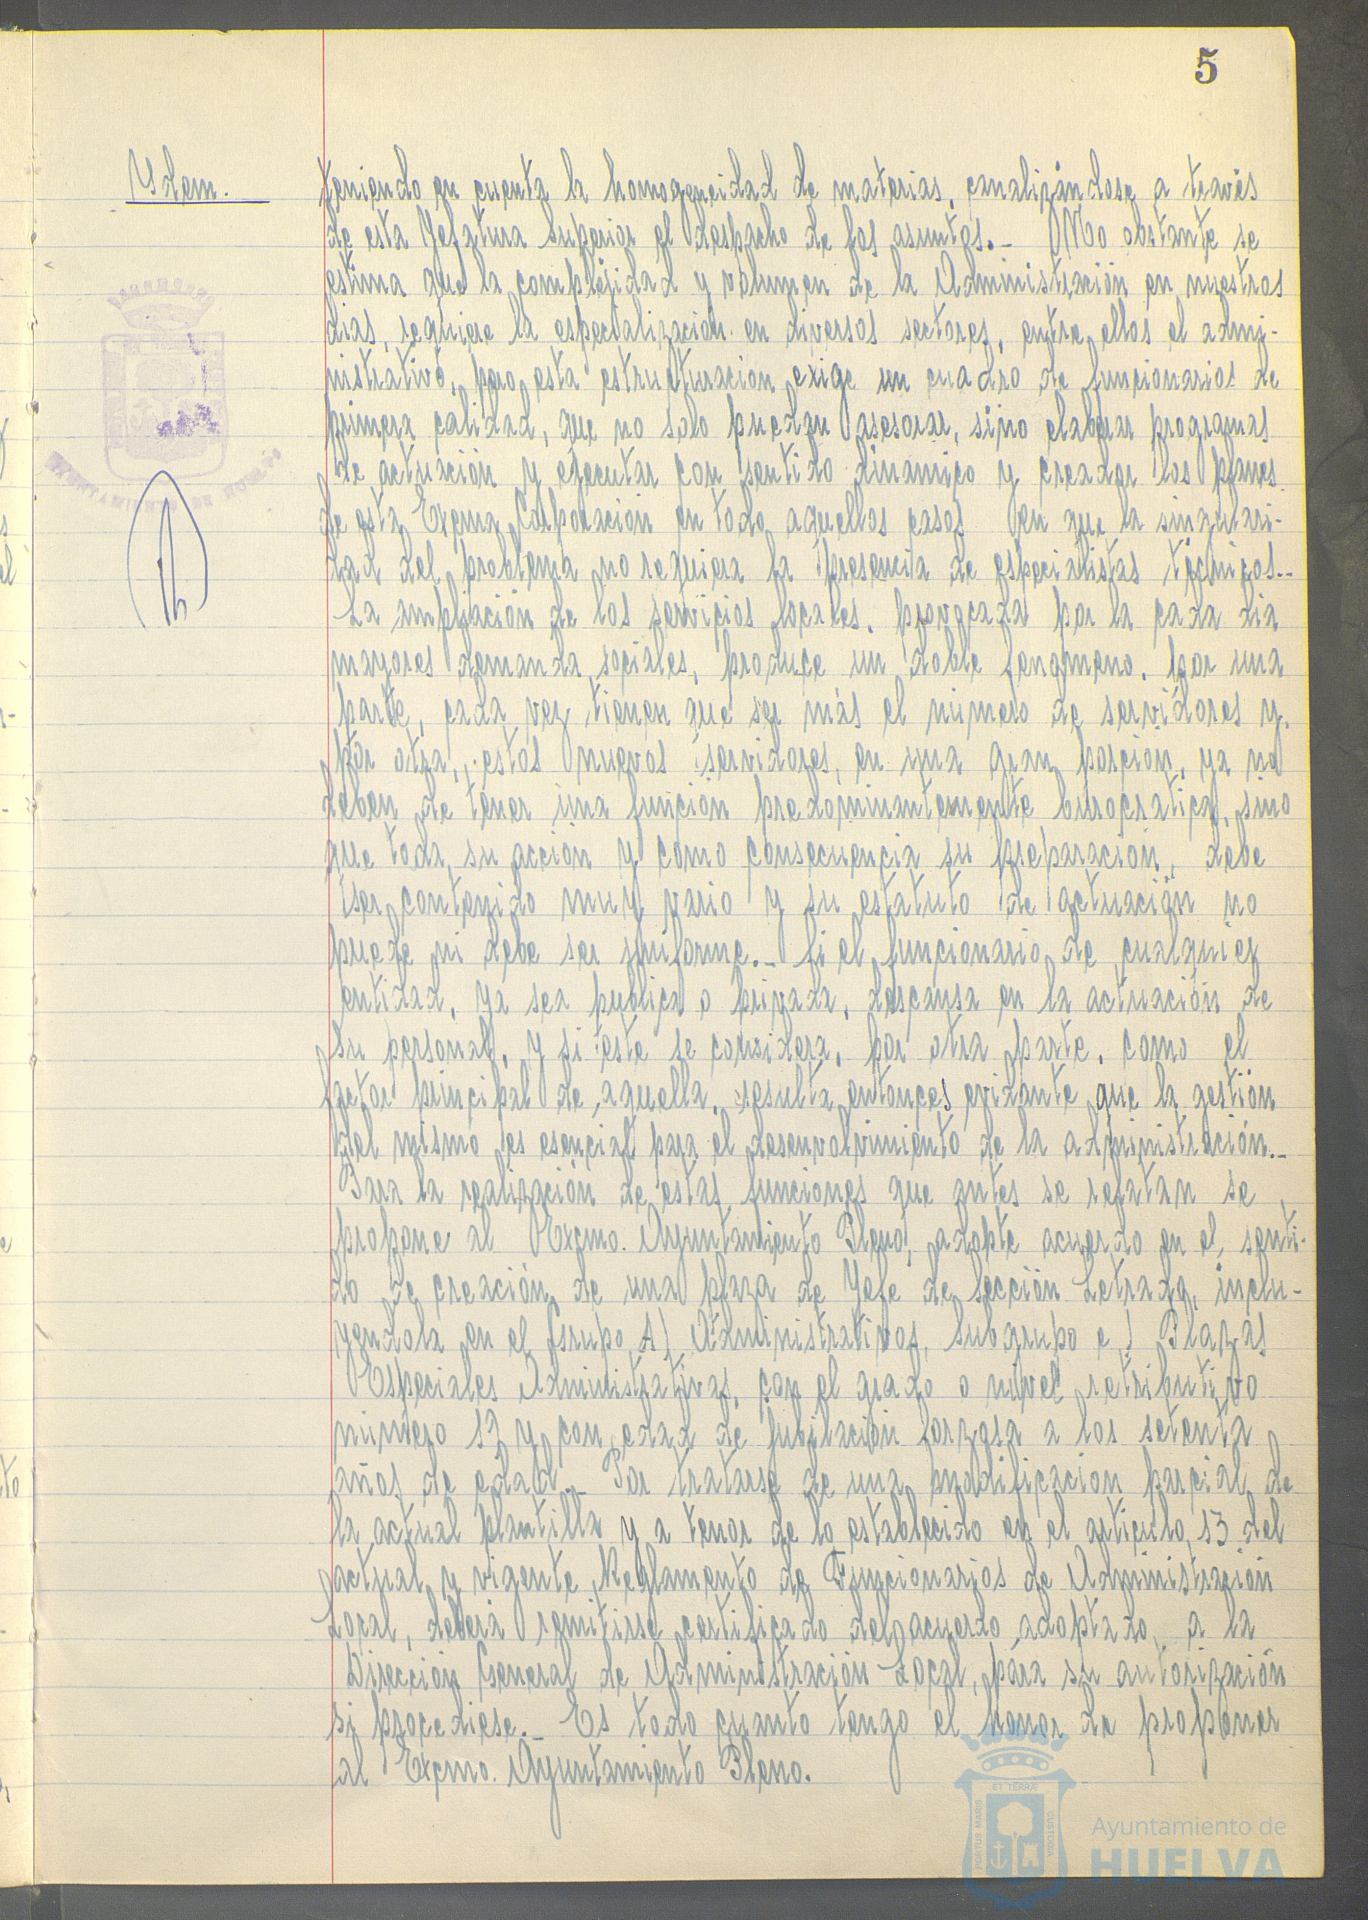 5
Ydem.
teniendo en cuenta la homogeneidad de materias, canalizándose a través
de esta Jefatura Superior el despacho de los asuntos.- No obstante se
estima que la complejidad y volumen de la Administración en nuestros
dias, requiere la especialización en diversos sectores, entre ellos el admi-
nistrativo, pero esta estructuración exige un cuadro de funcionarios de
primera calidad, que no solo puedan asesorar, sino elaborar programas
de actuación y ejecutar con sentido dinamico y creador los planes
de esta Excma Corporación en todo aquellos casos en que la singulari-
dad del problema no requiera la presencia de especialistas técnicos.-
La ampliación de los servicios locales, provocada por la cada dia
mayores demanda sociales, produce un doble fenomeno. Por una
parte, cada vez tienen que ser más el numero de servidores y,
por otra, estos nuevos servidores, en una gran porción, ya no
deben de tener una función predominantemente burocratica, sino
que toda su acción y como consecuencia su preparación, debe
ser contenido muy vario y su estatuto de actuación no
puede ni debe ser uniforme.- Si el funcionario de cualquier
entidad, ya sea publica o privada, descansa en la actuación de
su personal, y si este se considera, por otra parte, como el
factor principal de aquella, resulta entonces evidante que la gestión
del mismo es esencial para el desenvolvimiento de la administración.-
Para la realización de estas funciones que antes se relatan se
propone al Excmo. Ayuntamiento Pleno, adopte acuerdo en el senti-
do de creación de una plaza de Jefe de Sección Letrado, inclu-
yendola en el Grupo A) Administrativos, Subgrupo c) Plazas
Especiales Administrativas, con el grado o nivel retributivo
numero 19 y con edad de jubilación forzosa a los setenta
años de edad.- Por tratarse de una modificación parcial de
la actual plantilla y a tenor de lo establecido en el articulo 13 del
actual y vigente Reglamento de Funcionarios de Administración
Local, deberá remitirse certificado del acuerdo adoptado a la
Dirección General de Administración Local, para su autorización
si procediese.- Es todo cuanto tengo el honor de proponer
al Excmo. Ayuntamiento Pleno.
PORTUS MARIS ET TERRÆ CUSTODIA
Ayuntamiento de
HUELVA